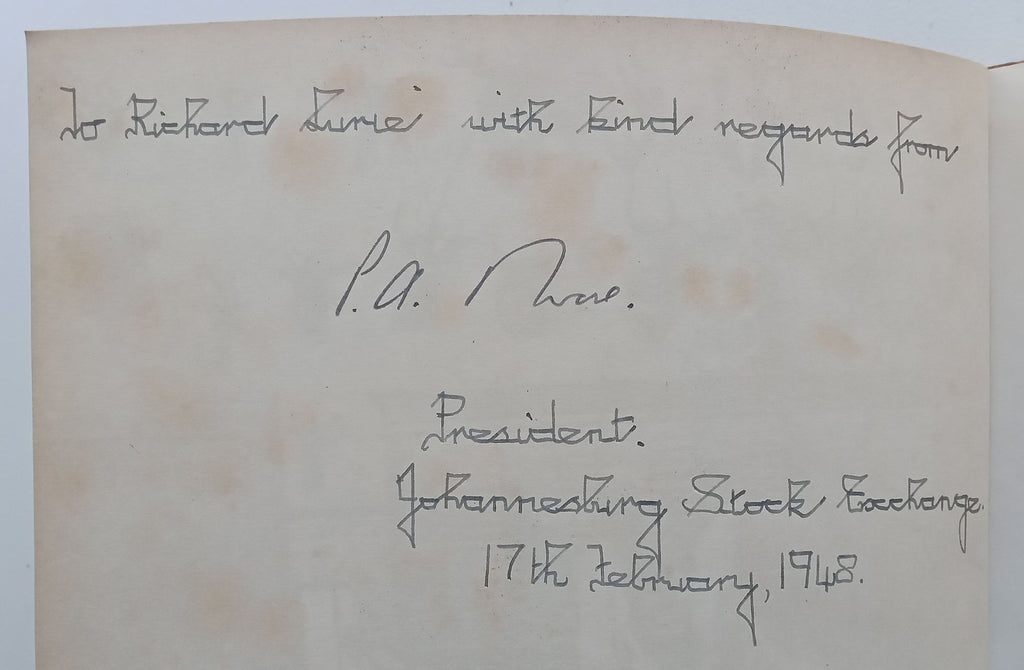 To Richard Lurie with kind regards from
P. A.
President.
Johannesburg Stock Exchange.
17th February, 1948.